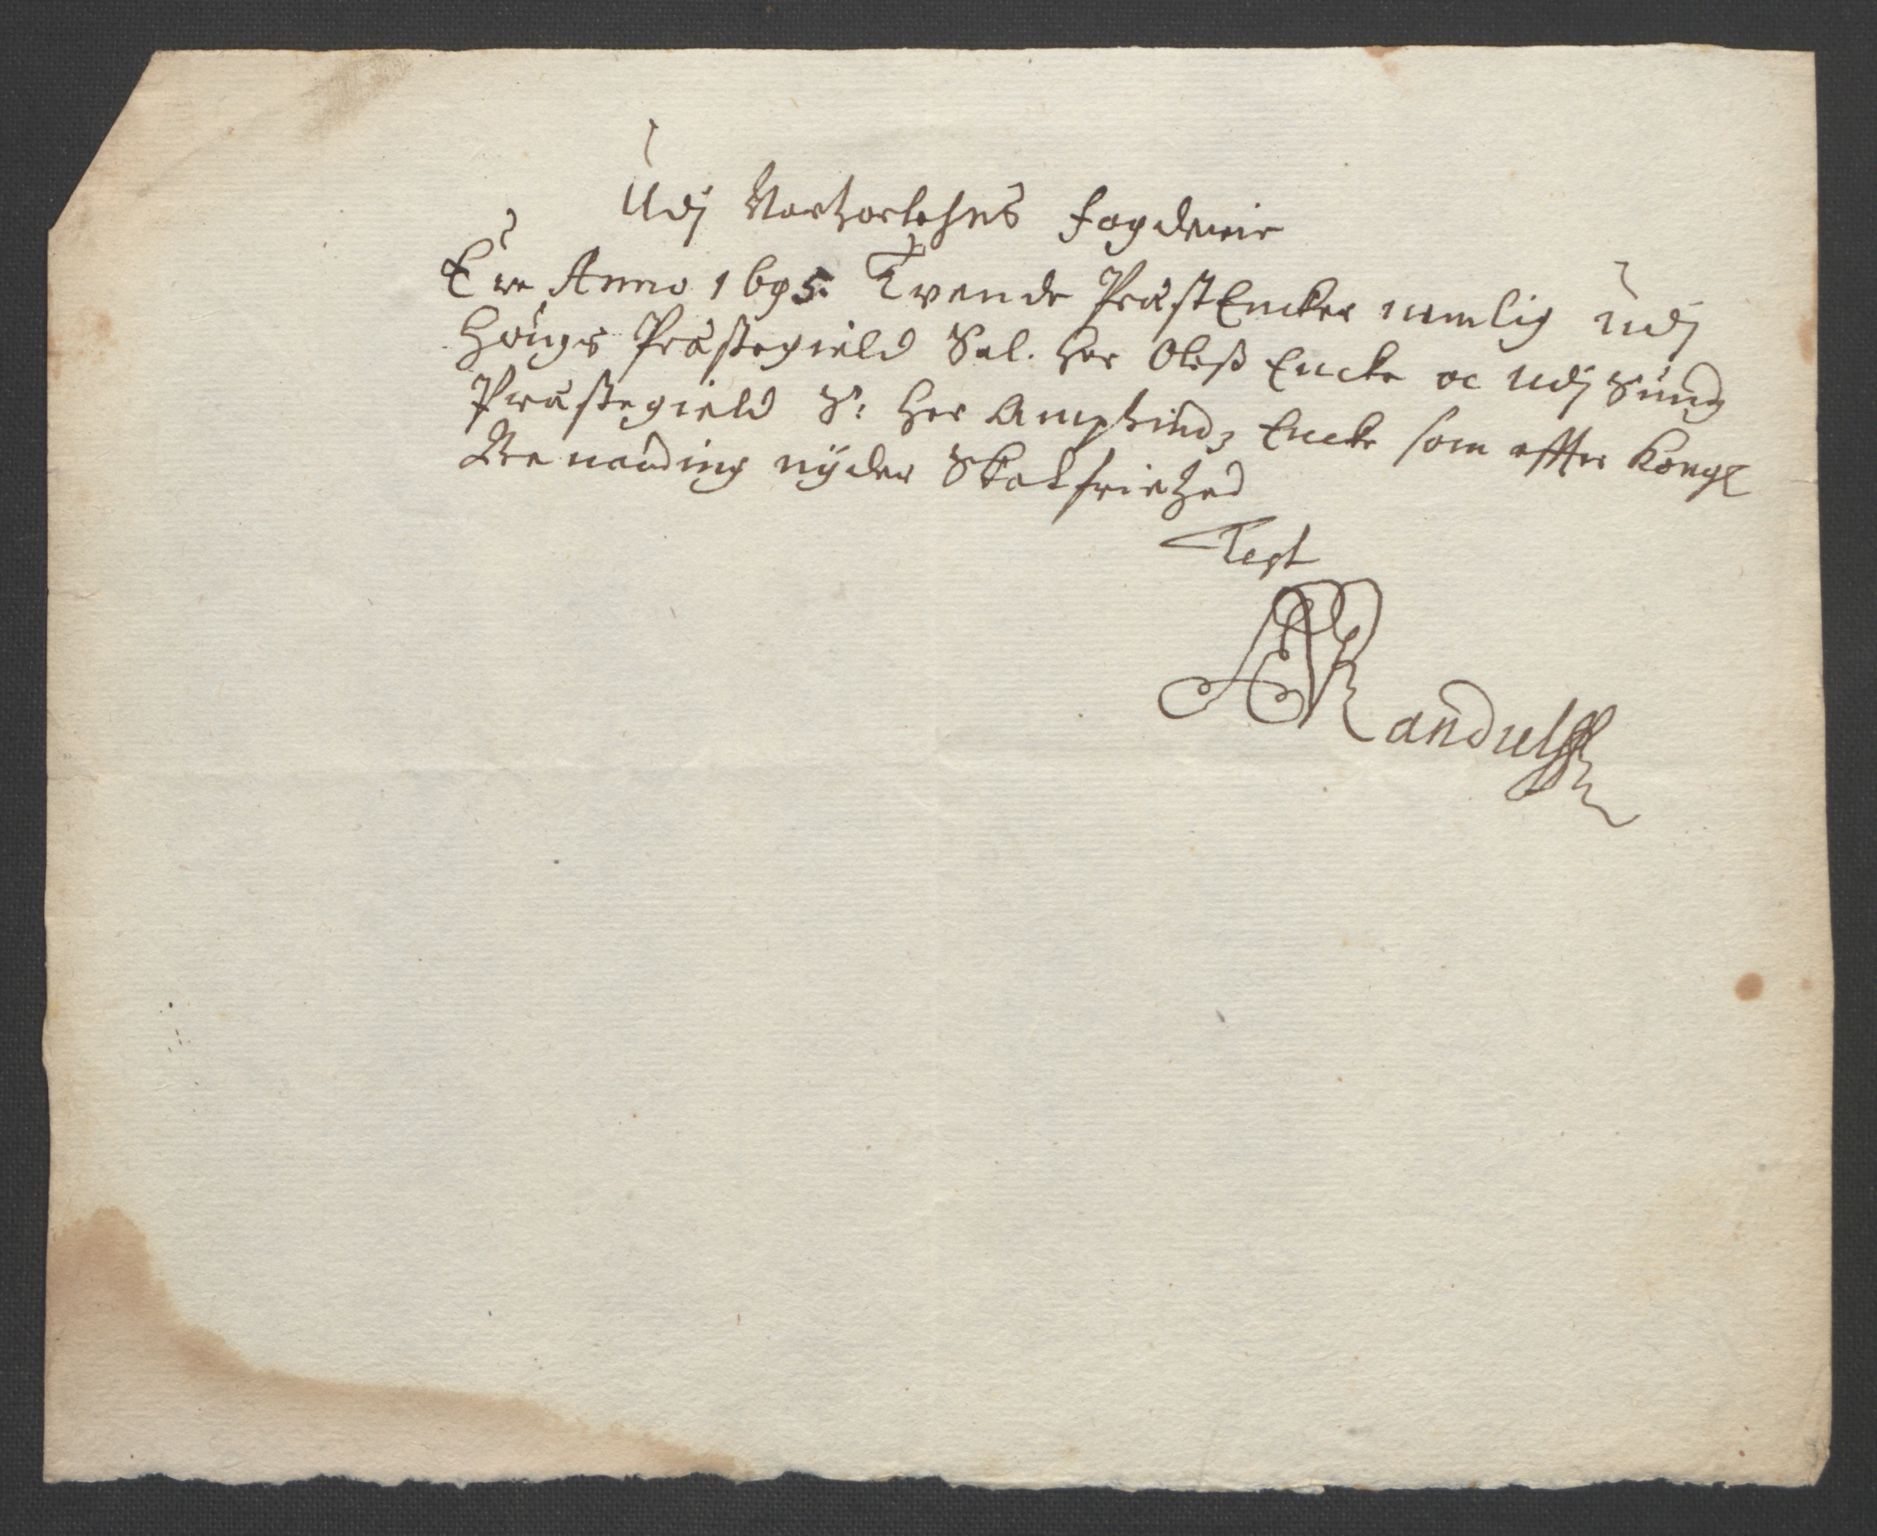 Udj Norhorlehns fogderie
Ere Anno 1695. Tvende PræstEncker nemlig udj
Houfs Præstegield Sal. Her Oles Encke oc udj Sund
Præstegield S: Her Amphinds Encke som effter Kongl
Benaading nÿder Skatfriehed
Test
ARandulff